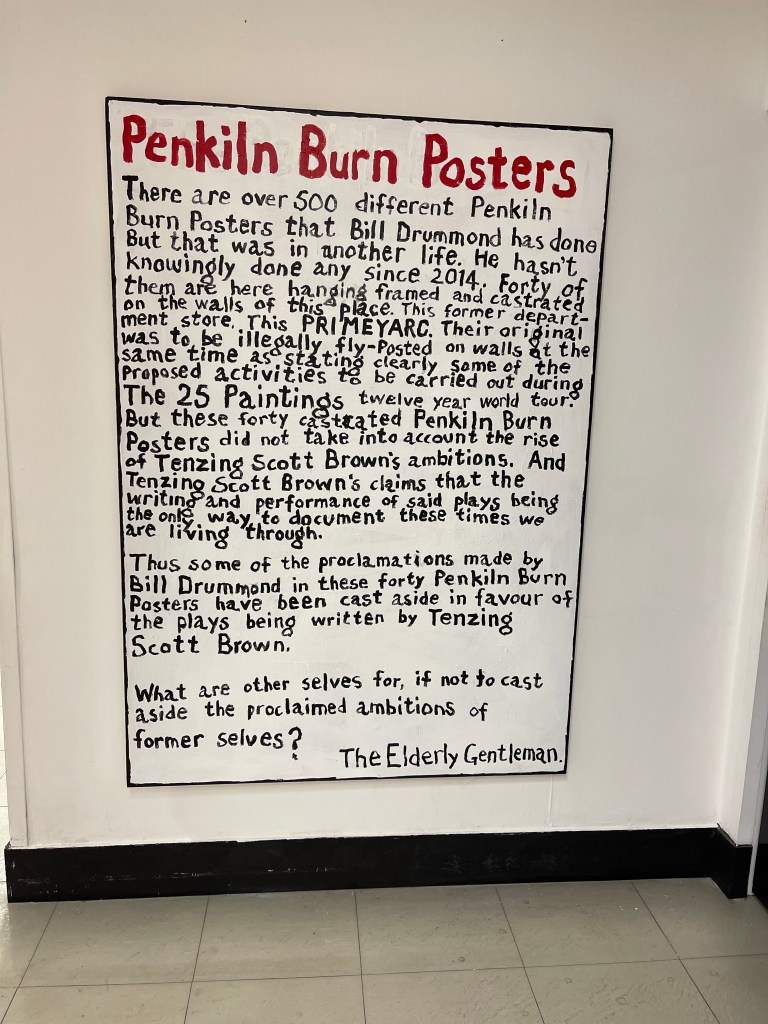 Penkiln Burn Posters
There are over 500 different Penkiln
Burn Posters that Bill Drummond has done
But that was in another life. He hasn't
knowingly done any since 2014. Forty of
them are here hanging framed and castrated
on the walls of this place. This former depart-
ment store. This PRIMEYARC. Their original
was to be illegally fly-Posted on walls at the
same time as stating clearly some of the
proposed activities to be carried out during
The 25 Paintings twelve year world tour.
But these forty castrated Penkiln Burn
Posters did not take into account the rise
of Tenzing Scott Brown's ambitions. And
Tenzing Scott Brown's claims that the
writing and performance of said plays being
the only way to document these times we
are living through.
Thus some of the proclamations made by
Bill Drummond in these forty Penkiln Burn
Posters have been cast aside in favour of
the plays being written by Tenzing
Scott Brown.
What are other selves for, if not to cast
aside the proclaimed ambitions of
former selves?
The Elderly Gentleman.